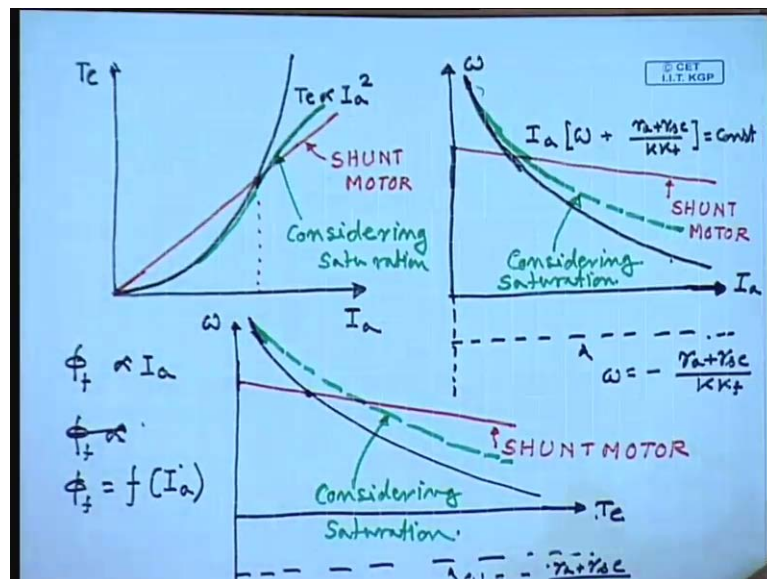 Te
Te ∝ Ia²
SHUNT
MOTOR
Considering
Saturation
Ia
ω
© CET
I.I.T. KGP
Ia [ω + (ra+rse)/(KKf)] = Const
SHUNT
MOTOR
Considering
Saturation
Ia
ω = - (ra+rse)/(KKf)
ϕf ∝ Ia
ϕf ∝
ϕf = f(Ia)
ω
SHUNT MOTOR
Considering
Saturation.
Te
ra+rse